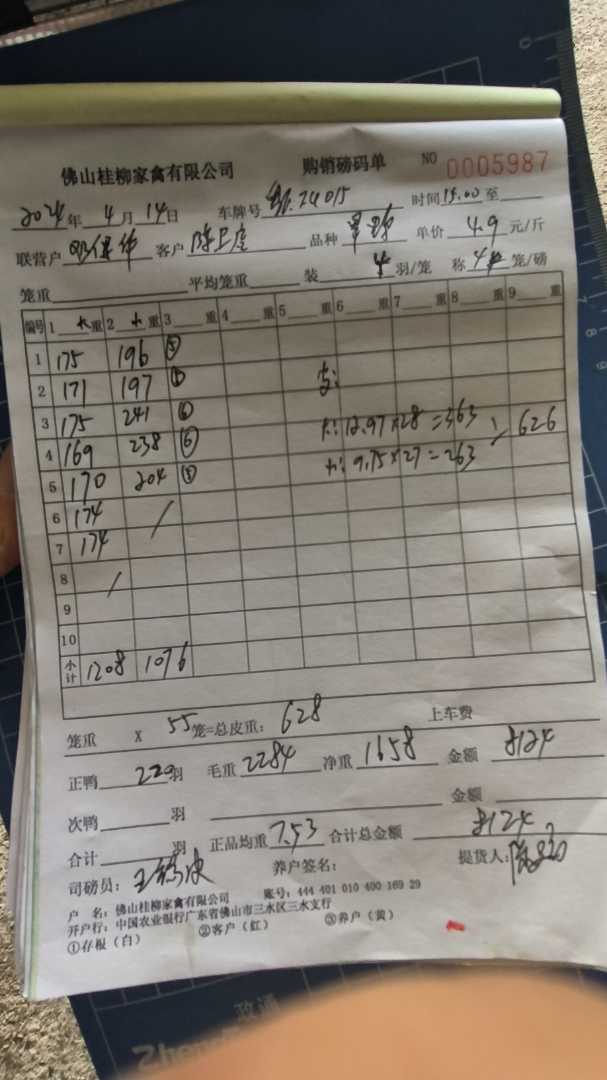 佛山桂柳家禽有限公司 购销磅码单 NO 0005987
2024年 4月 14日 车牌号 24015 时间 15.00 至
联营户 客户 陈 品种 单价 4.9 元/斤
笼重 平均笼重 装 4 羽/笼 称 4 笼/磅
编号 1 大重 2 小重 3 重 4 重 5 重 6 重 7 重 8 重 9 重
1 175 196 ⑤
2 171 197
3 175 241 ⑥
4 169 238 ⑥
大: 12.97×28=363
626
5 170 204 ⑤
小: 9.75×27=263
6 174 /
7 174
8 /
9
10
小计 1208 1076
笼重 X 55 笼=总皮重: 628 上车费
正鸭 220 羽 毛重 2284 净重 1658 金额 8124
次鸭 羽 金额
合计 羽 正品均重 7.53 合计总金额 8124
司磅员: 王 养户签名: 提货人:
户 名: 佛山桂柳家禽有限公司 账号: 444 401 010 400 169 29
开户行: 中国农业银行广东省佛山市三水区三水支行
①存根（白） ②客户（红） ③养户（黄）
政通